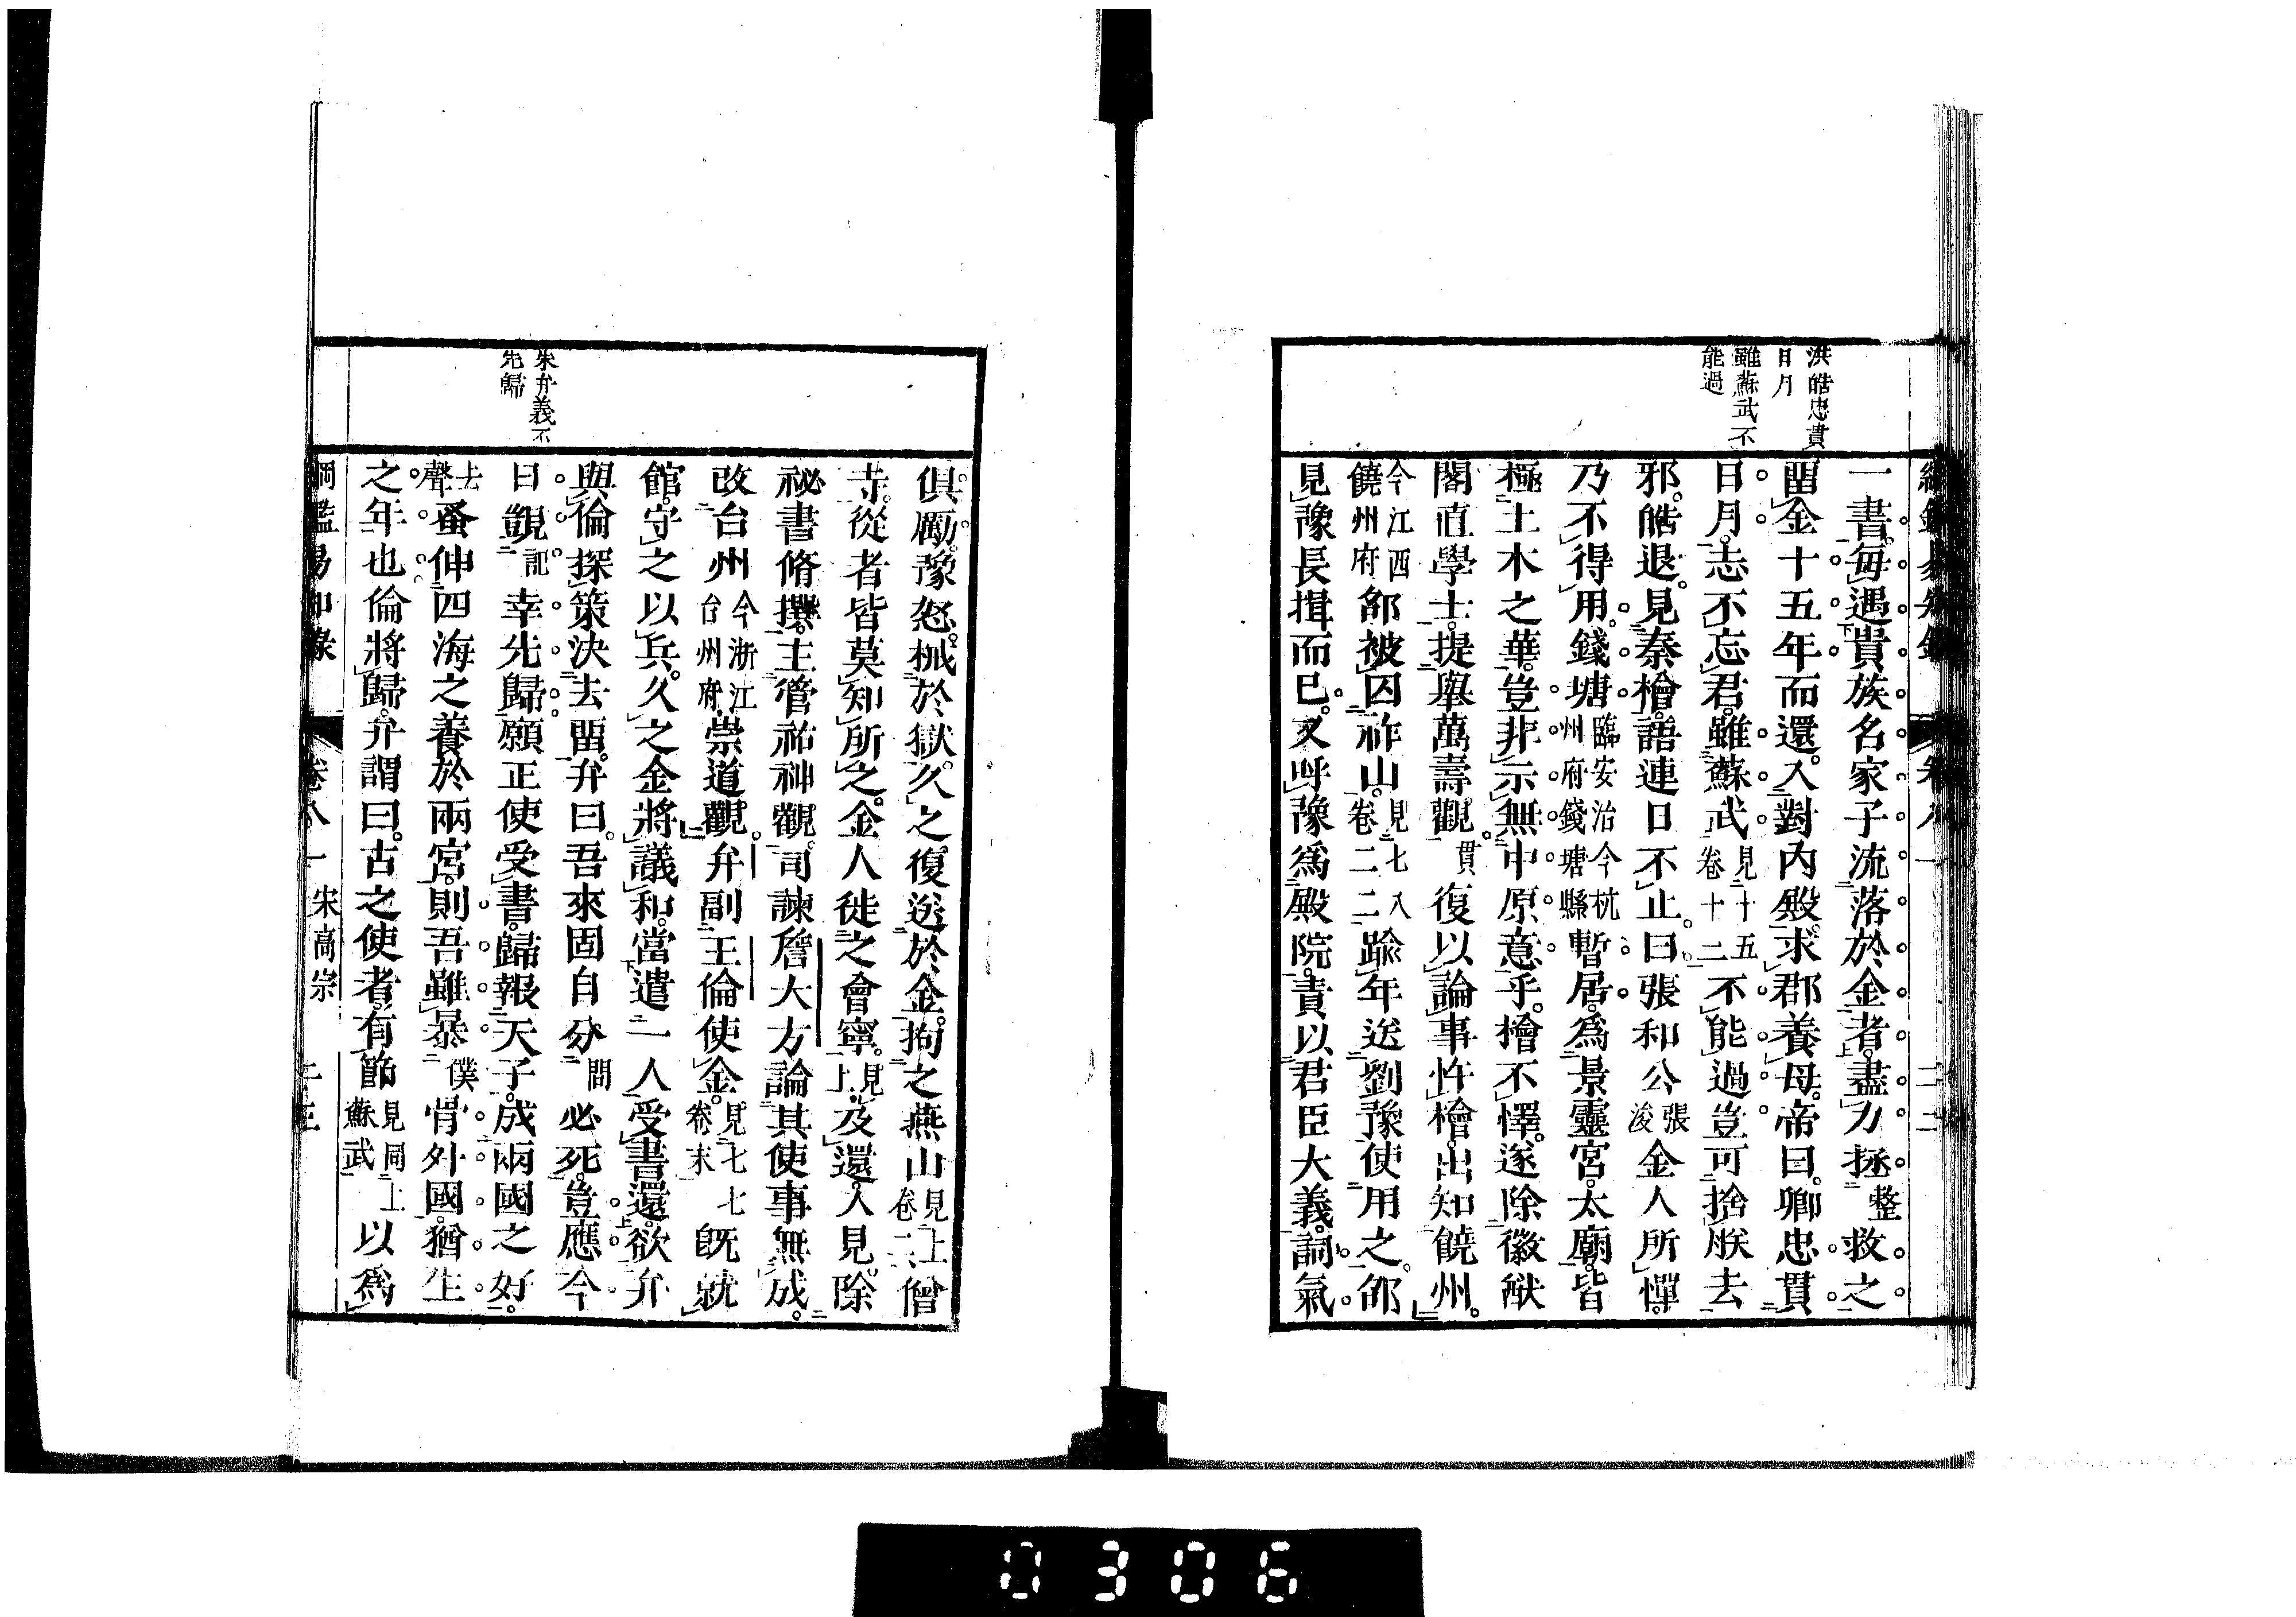 洪皓忠貫
日月
雖蘇武不
能過
一書。每遇貴族名家子流落於金者。盡力拯整救之
留金十五年而還。入對內殿。求郡養母。帝曰。卿忠貫
日月。志不忘君。雖蘇武見二十五卷十二不能過。豈可捨朕去
邪。皓退。見秦檜。語連日不止。曰。張和公張浚金人所憚。
乃不得用。錢塘臨安治今杭州府錢塘縣暫居。爲景靈宮。太廟。皆
極土木之華。豈非示無中原意乎。檜不懌。遂除徽猷
閣直學士。提舉萬壽觀。貫復以論事忤檜。出知饒州。
今江西饒州府郃被囚祚山。見七八卷二二踰年送劉豫使用之。郃
見豫長揖而已。又呼豫爲殿院。責以君臣大義。詞氣
綱鑑易知錄 卷八一 宋高宗 二三
朱弁義不
先歸
俱厲。豫怒。械於獄。久之。復送於金。拘之燕山見上卷二、僧
寺。從者皆莫知所之。金人徙之會寧。見上。及還。入見。除
祕書脩撰。主管祐神觀。司諫詹大方論其使事無成。
改台州今浙江台州府。崇道觀。弁副王倫使金。見七七卷末既就
館。守之以兵。久之金將議和。當遣一人受書還。欲弁
與倫探策決去留。弁曰。吾來固自分問必死。豈應今
日覬記幸先歸。願正使受書。歸報天子。成兩國之好。
去聲蚤伸四海之養於兩宮。則吾雖暴僕骨外國。猶生
之年也。倫將歸。弁謂曰。古之使者有節見同上蘇武以爲
0306